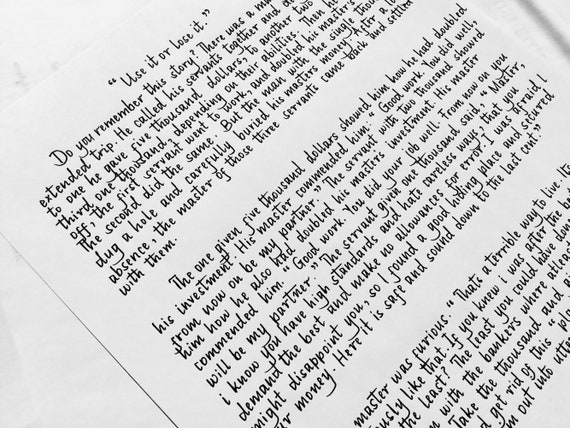 “ Use it or lose it.”
Do you remember this story? There was a
extended trip. He called his servants together and
to one he gave five thousand dollars, to another two
third one thousand, depending on their abilities. Then
off, the first servant went to work, and doubled his masters
The second did the same. But the man with the single
dug a hole and carefully buried his masters money. After a
absence, the master of those three servants came back and
with them.
The one given five thousand dollars showed him how he had doubled
his investment. His master commended him “ Good work. You did well,
from now on be my partner.” The servant with two thousand showed
him how he also had doubled his masters investment. His master
commended him “ Good work. You did your job well. From now on you
will be my partner.” The servant given one thousand said, “ Master,
i know you have high standards and hats careless ways, that you
demand the best and make no allowances for error. I was afraid I
might disappoint you, so I found a good hiding place and secured
money. Here it is safe and sound down to the last cent.”
master was furious. “ Thats a terrible way to live.
like that. If you knew i was after the
the least? The least you could have
with the bankers where atleast
Take the thousand and
get rid of this “
out into